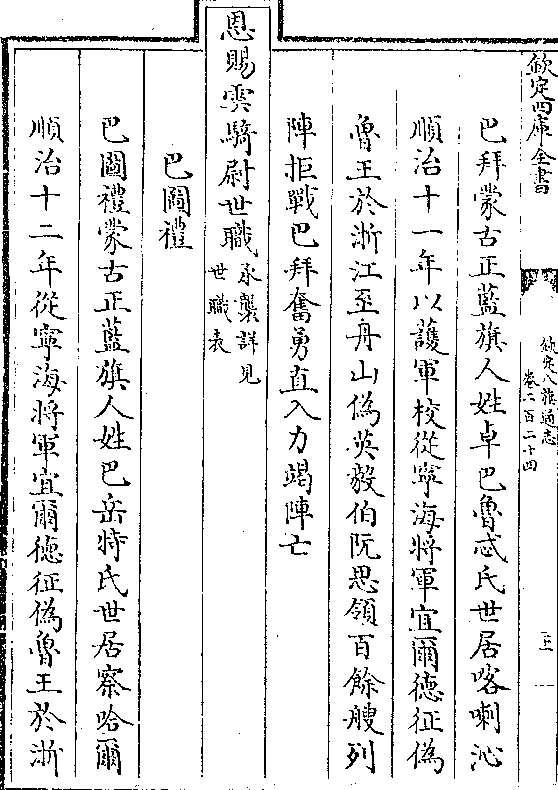 欽定四庫全書
欽定八旗通志
卷二百二十四
巴拜蒙古正藍旗人姓卓巴魯忒氏世居喀喇沁
順治十一年以護軍校從寧海將軍宜爾德征偽
魯王於浙江至舟山偽英毅伯阮思領百餘艘列
陣拒戰巴拜奮勇直入力竭陣亡
恩賜雲騎尉世職承襲詳見
世職表
巴圖禮
巴圖禮蒙古正藍旗人姓巴岳特氏世居察哈爾
順治十二年從寧海將軍宜爾德征偽魯王於浙